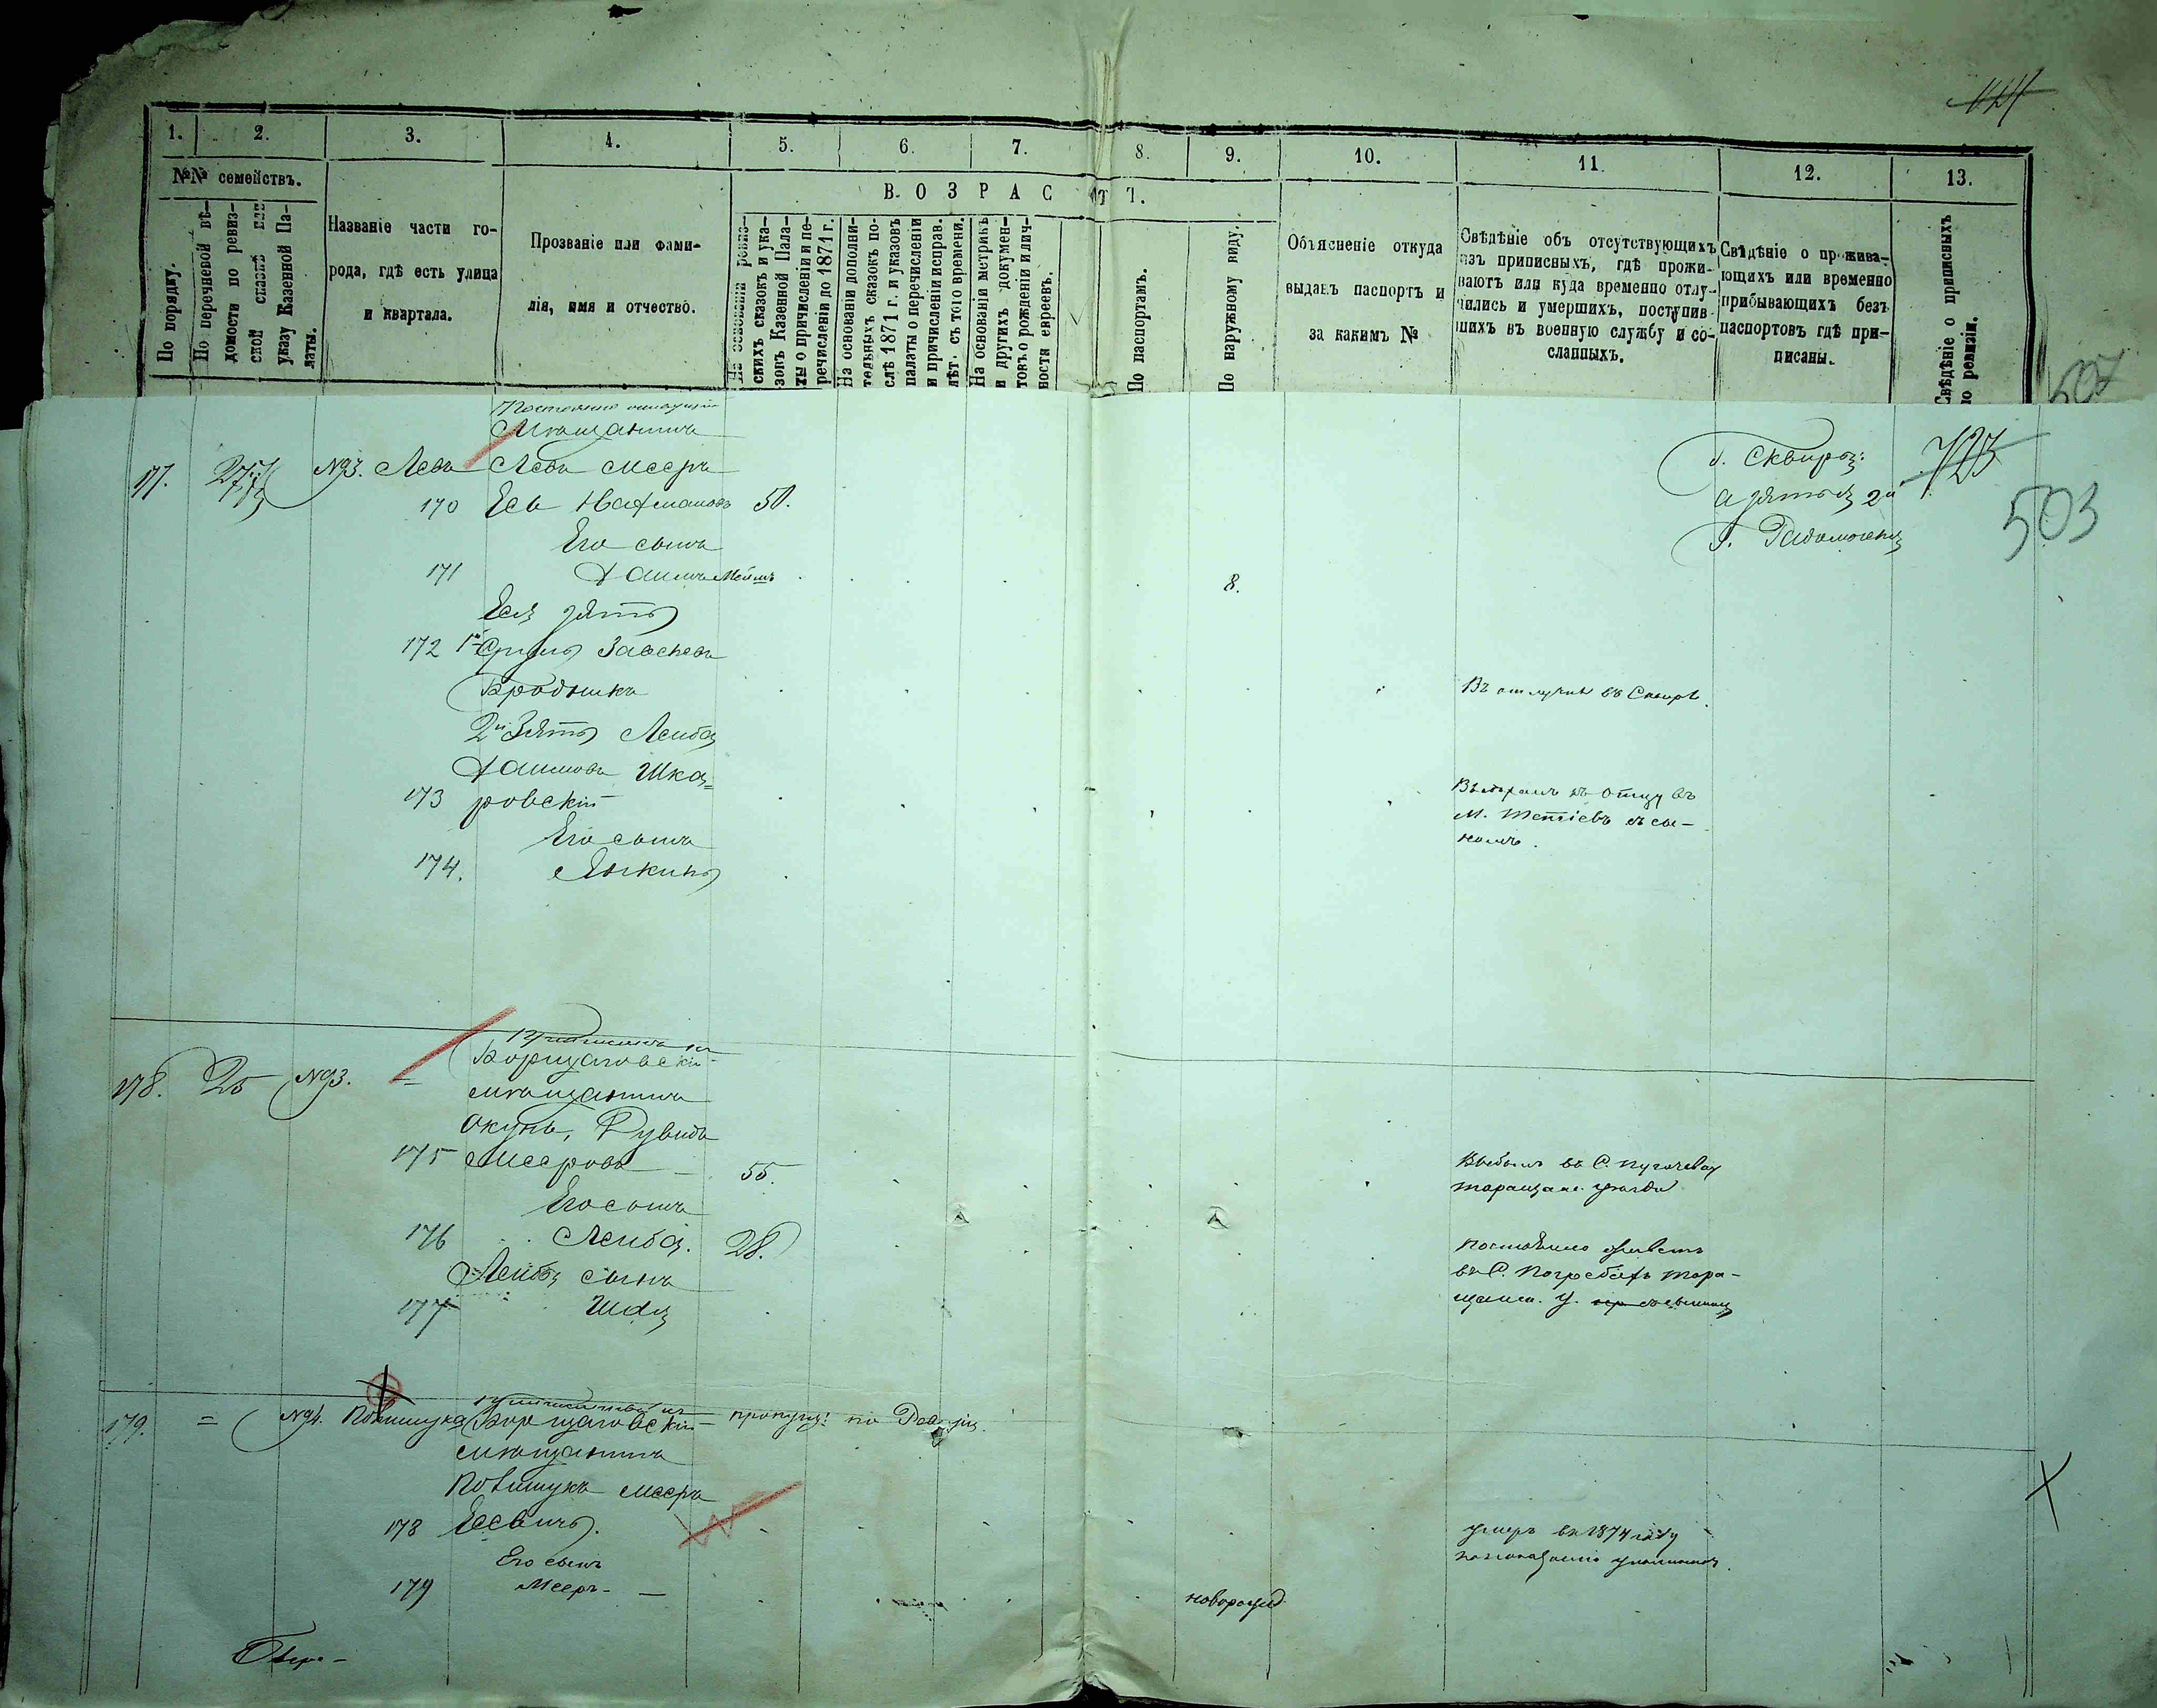 1. 2. 3. 4. 5. 6. 7. 8. 9. 10. 11. 12. 13.
№№ семействъ.
В О З Р А С Т Ъ.
По порядку.
По перечневой вѣ-
домости по ревиз-
ской сказкѣ или
указу Казенной Па-
латы.
Названіе части го-
рода, гдѣ есть улица
и квартала.
Прозваніе или фами-
лія, имя и отчество.
На основаніи ревиз-
скихъ сказокъ и ука-
зовъ Казенной Пала-
ты о причисленіи и пе-
речисленіи до 1871 г.
На основаніи дополни-
тельныхъ сказокъ по-
слѣ 1871 г. и указовъ
палаты о перечисленіи
и причисленіи исправ.
лѣт. съ того времени.
На основаніи метрикъ
и другихъ докумен-
товъ о рожденіи и лич-
ности евреевъ.
По паспортамъ.
По наружному виду.
Объясненіе откуда
выданъ паспортъ и
за какимъ №
Свѣдѣніе объ отсутствующихъ
изъ приписныхъ, гдѣ прожи-
ваютъ или куда временно отлу-
чились и умершихъ, поступив-
шихъ въ военную службу и со-
сланныхъ.
Свѣдѣніе о прожива-
ющихъ или временно
прибывающихъ безъ
паспортовъ гдѣ при-
писаны.
Свѣдѣніе о приписныхъ
по ревизіи.
507
Мѣщанинъ
177. №93. Левъ Левъ Мееръ
г. Сквиры:
503
170 Есь Нахмановъ 50.
а зятья 2й
Его сынъ
г. Радомысля
171 Хаимъ Мейшъ 8.
Еся зять
172 1й Сруль Завелевъ
Бродскихъ
Въ отлучкѣ въ Сквирѣ.
2й Зять Лейба
Хаимовъ Шка-
173 ровскій
Выѣхалъ къ отцу въ
М. Тетіевъ съ сы-
номъ.
Его сынъ
174. Янкиль
178. 25 №93. = Борщаговскій
мѣщанинъ
Окунь, Рувинъ
175 Мееровъ 55.
Выбылъ въ С. Пугачевку
таращанс. уѣзда
Его сынъ
176 Лейба. 28.
Постоянно живетъ
въ С. Погребахъ тара-
щанск. у. съ сыномъ
Лейбы сынъ
177 Шая
179. = №94. Повишука Борщаговскій пропущ: по Ревизіи.
мѣщанинъ
Повишукъ Мееръ
178 Есевичъ.
умеръ въ 1874 году
Его сынъ
179 Мееръ - новорожд.